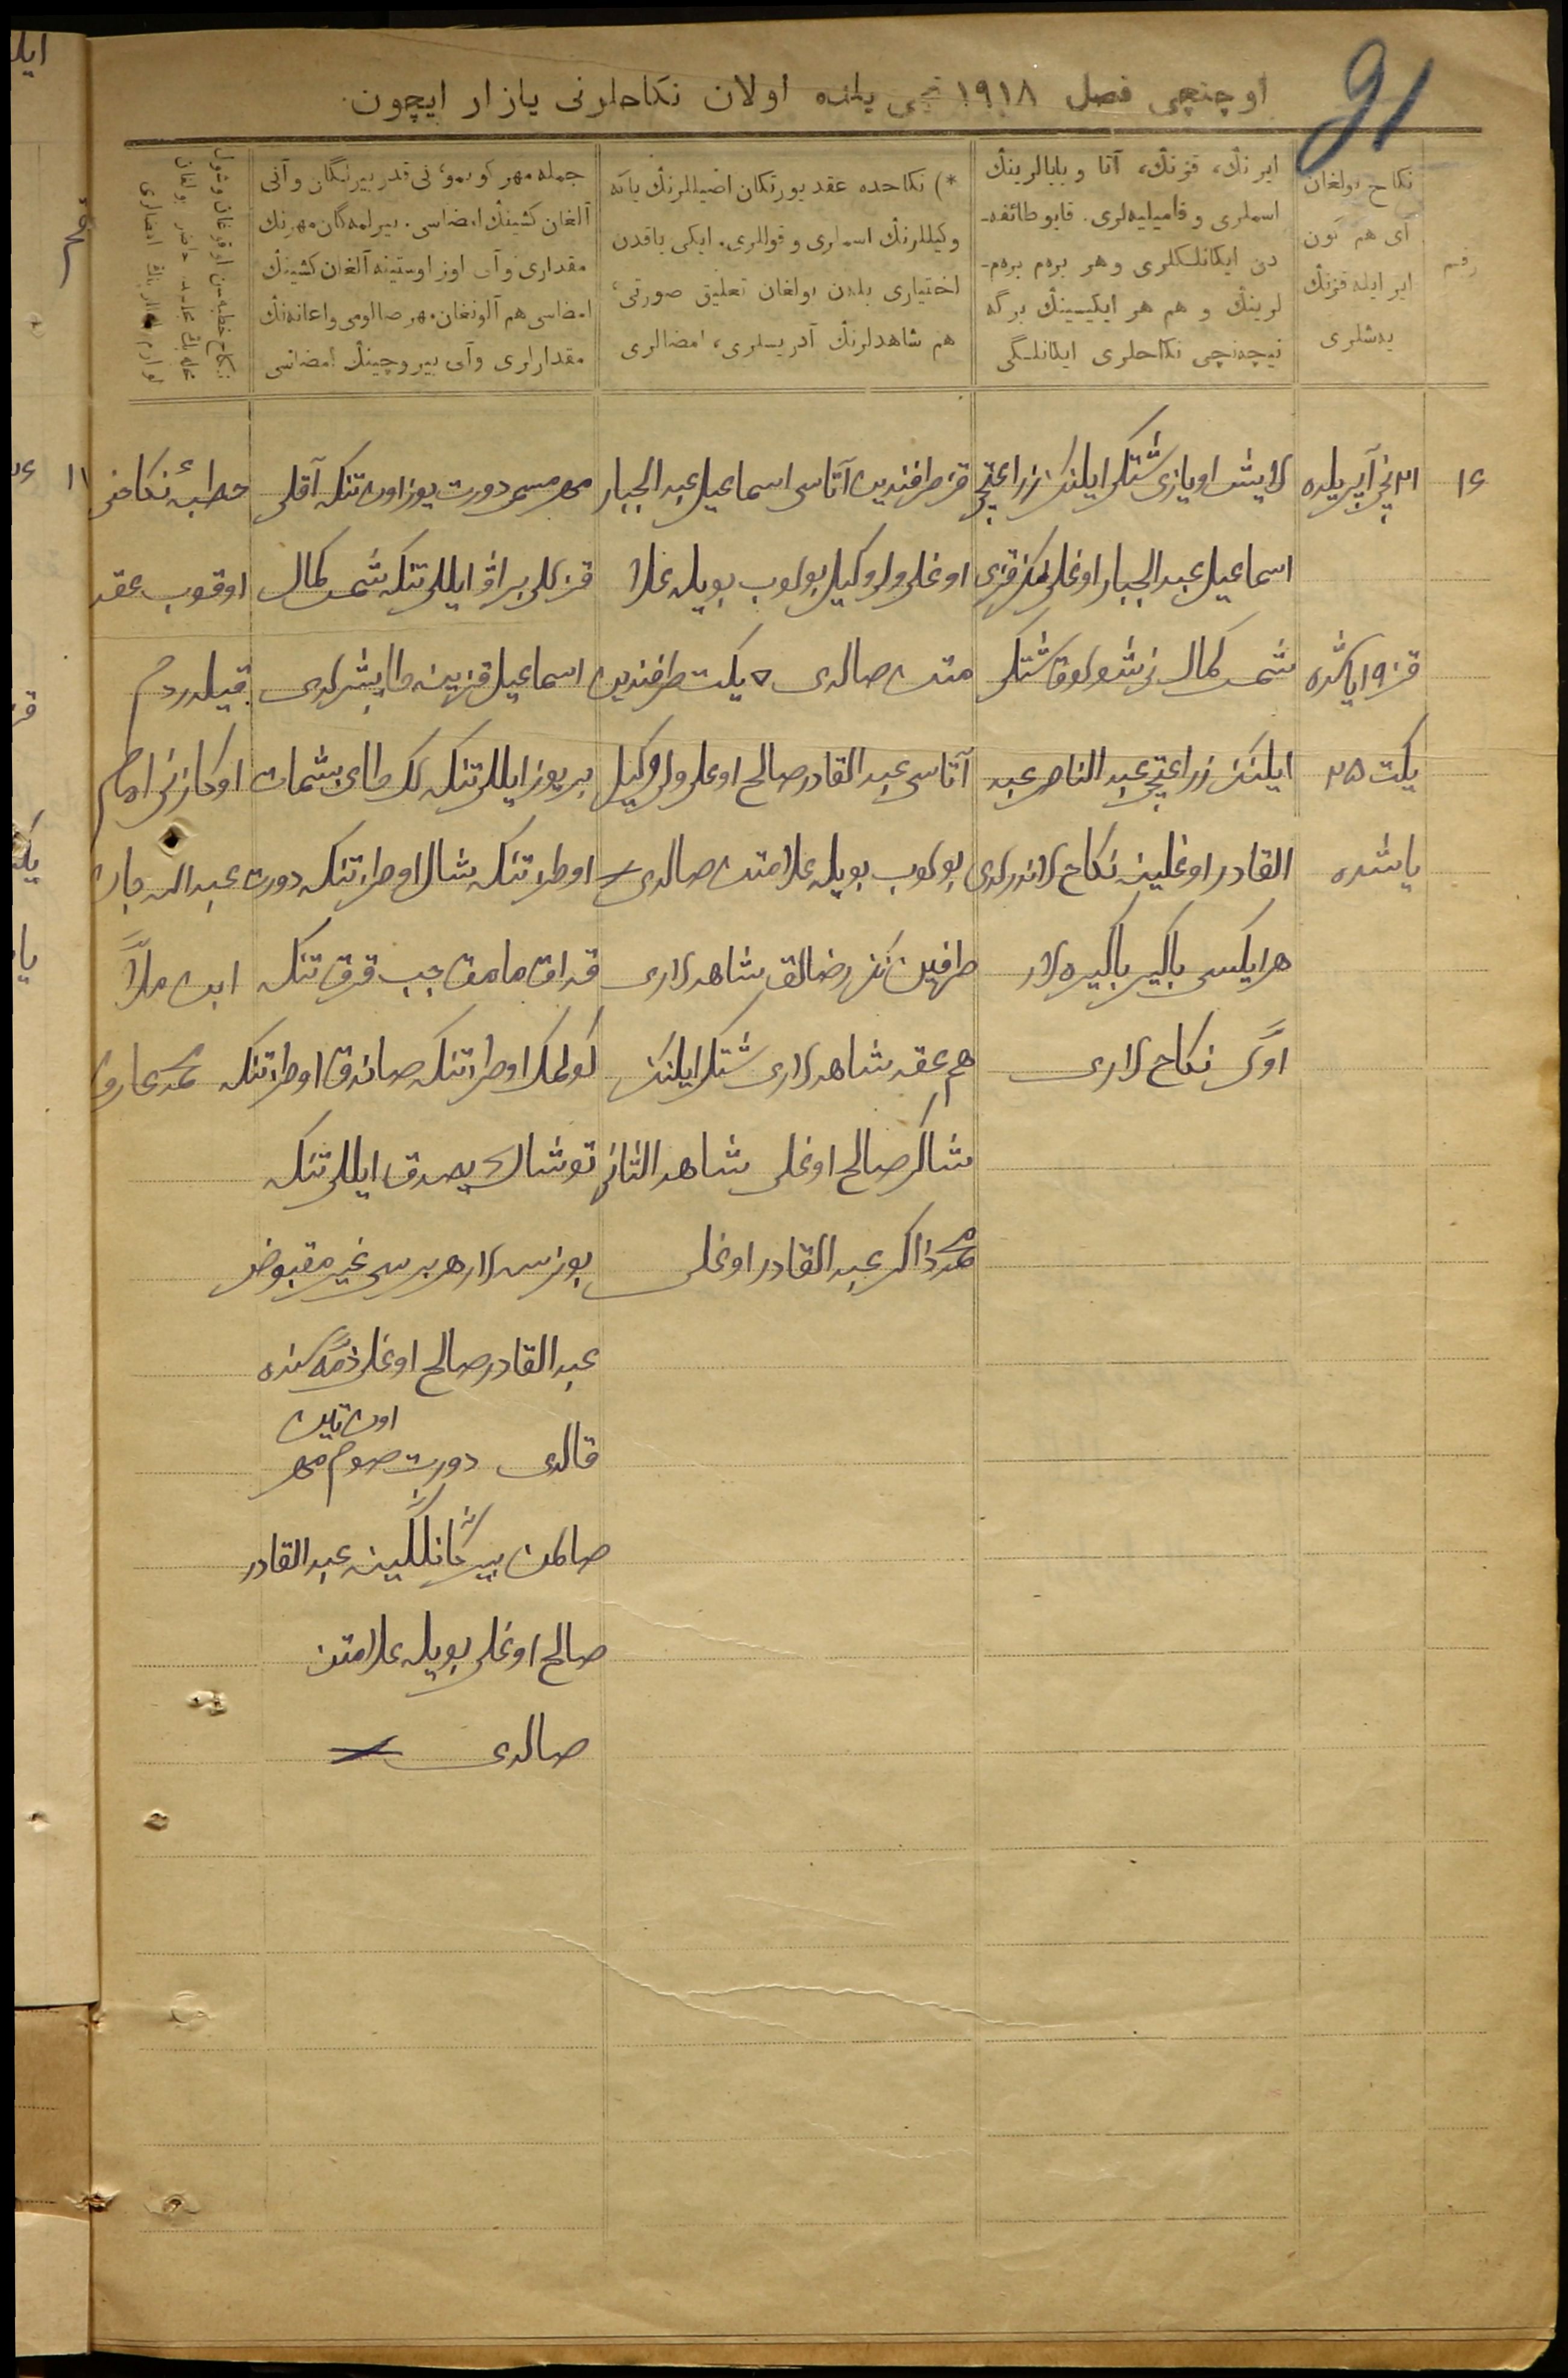 91
اوچنچی فصل ۱۹۱۸ نچی یلنده اولان نکاحلرنی یازار ایچون.
رقم
نکاح بولغان
آی هم کون
ایر ایله قزنڭ
یەشلری
ایرنڭ، قزنڭ، آتا و بابالرینڭ
اسملری و فامیلیەلری. قایو طائفە-
دن ایکانلکلری و هر برەم برەم-
لرینڭ و هم هر ایکیسینڭ برگە
نیچەنچی نکاحلری ایکانلگی
*) نکاحدە عقد یورتکان اصیللرنڭ یاکە
وکیللرنڭ اسملری و قوللری. ایکی یاقدن
اختیاری بلەن بولغان تعلیق صورتی،
هم شاهدلرنڭ آدریسلری، امضالری
جملە مهر کوبمو، نی قدر بیرلگان و آنی
آلغان کشینڭ امضاسی. بیرلمەگان مهرنڭ
مقداری و آنی اوز اوستینە آلغان کشینڭ
امضاسی هم آلونغان مهر صالومی و اعانەنڭ
مقدارلری و آنی بیروچینڭ امضاسی
نکاح خطبەسن اوقوغان و شول
۱۶
۲۱ نچی آپریلده
قز ۱۹ یاشده
یکت ۲۵
یاشده
لایش اویازی شتکی ایلننڭ زراعتچی
اسماعیل عبد الجبار اوغلی نڭ قزی
شمس کمال نی شولوق شتکی
ایلننڭ زراعتچی عبد الناصر عبد
القادر اوغلینه نکاح لاندرلدی
هر ایکسی باکیر باکیره لار
اوّل نکاح لاری
قز طرافندین آتاسی اسماعیل عبد الجبار
اوغلی ولی وکیل بولوب بویله علا
متن صالدی یکت طرفندین
آتاسی عبد القادر صالح اوغلی ولی وکیل
بولوب بویله علامتن صالدی
طرفین نڭ رضالق شاهدلاری
هم عقد شاهدلاری شتکی ایلننڭ
شاکر صالح اوغلی شاهد الثانی
محمد ذاکر عبد القادر اوغلی
مهر مسمی دورت یوز اون تنکه آقلی
قزللی براق ایللی تنکه شمس کمال
اسماعیل قزینه طابشرلدی
بر یوز ایللی تنکه لک طای بشمات
اوطز تنکه شال اوطز تنکه دورت
قداق مامق جب قرق تنکه
کولمک اوطز تنکه صاندق اوطز تنکه
توشاک یصدق ایللی تنکه
بو نرسه لار هر برسی غیر مقبوض
عبد القادر صالح اوغلی ذمّه سنده
اون تین
قالدی دورت صوم مهر
صالمن بیرگانلگینه عبد القادر
صالح اوغلی بویله علامتن
صالدی
خطبهٔ نکاحنی
اوقوب عقد
قیلدردم
اوکازنی امام
عبد الله جان
ابن ملّا
محمد عارف